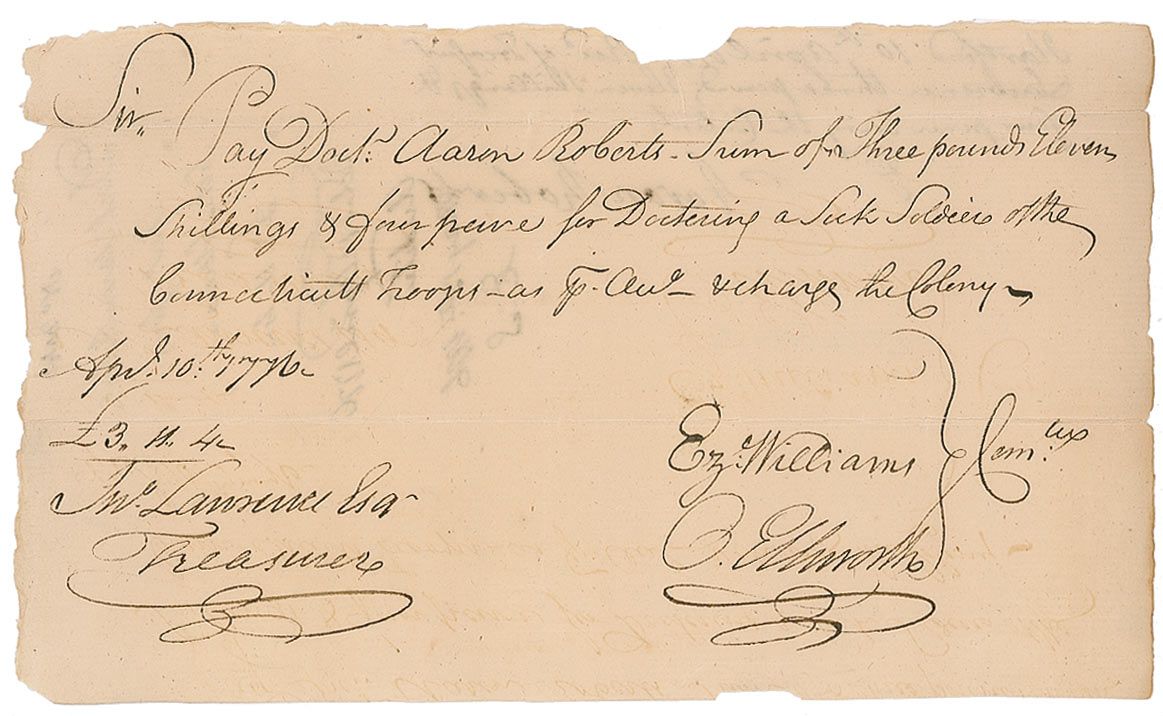 Sir,,
Pay Doctr. Aaron Roberts - Sum of Three pounds Eleven
Shillings & four pence for Doctering a Sick Soldier of the
Connecticutt Troops - as pr. Acct - & charge the Colony -
Apr.l 10.th 1776 -
£3,, 11,, 4 -
Jno Lawrence Esqr
Treasurer
Ez. Williams
O. Ellsworth
Com.tee